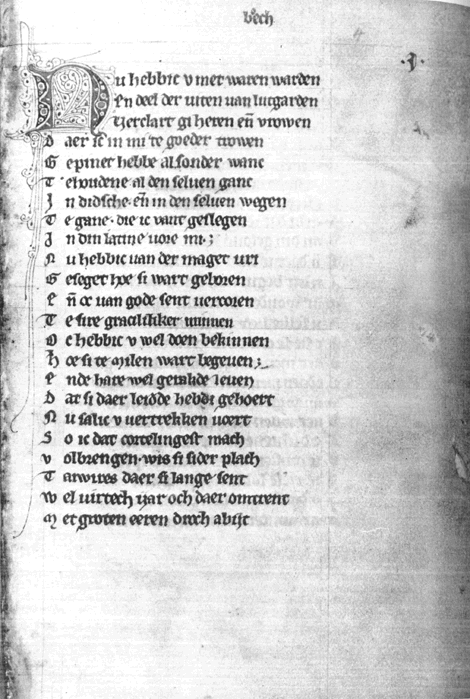 boech
·J·
Nu hebbic v met waren warden
En deel der viten uan lutgarden
Verclart gi heren eñ vrowen
Daer ic in mi te goeder trowen
Gepinet hebbe al sonder wanc
Te houdene al den seluen ganc
In didsche· eñ in den seluen wegen
Te gane· die ic vant geslegen
In din latine uore mi·;
Nu hebbic uan der maget uri
Geseget hoe si wart geboren
Eñ oc uan gode sent vercoren
Te sire minnen
Oc hebbic v wel doen bekinnen
Hoe si te Milen wart begeuen·;
Ende hare wel gerakde leuen
Dat si daer leidde hebdi gehoert
Nu salic v vertrekken voert
So ic dat cortelingest mach
Volbrengen· wis si sider plach
Taiwires daer si lange sent
Wel virtech yar och daer omtrent
Met groten eeren droch abijt